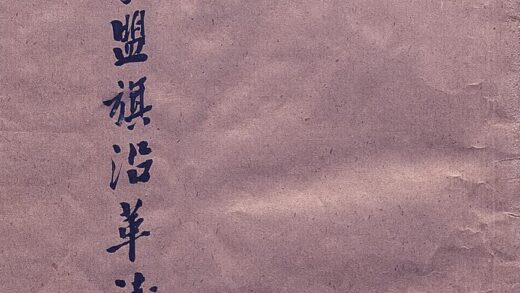 盟旗沿革